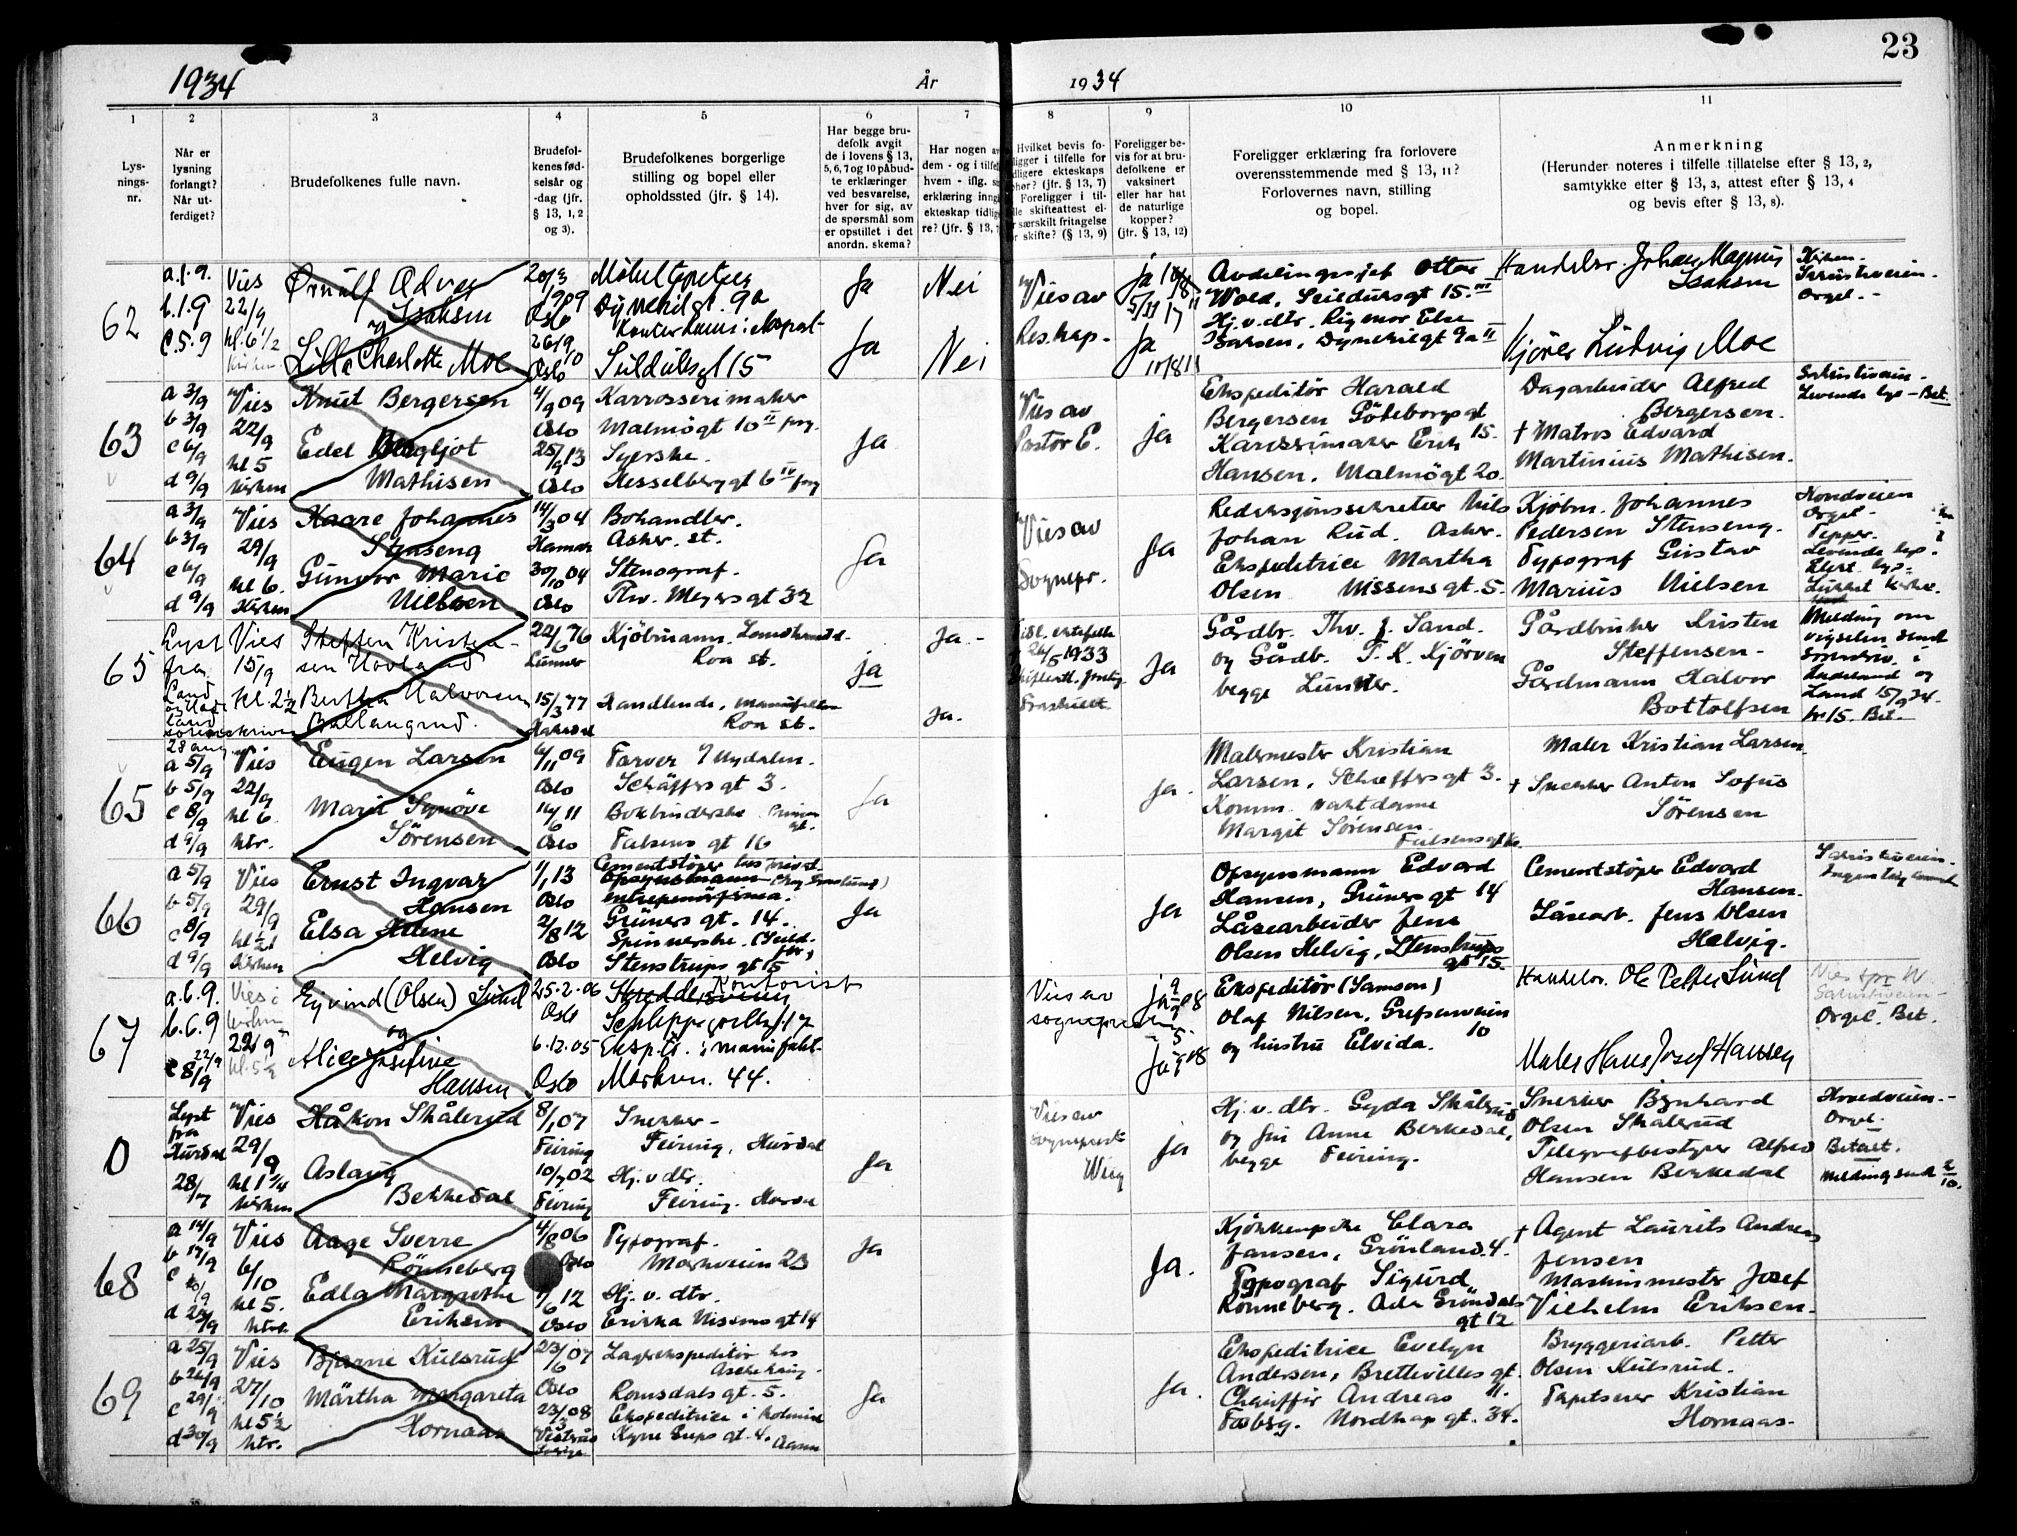 23
1934 År 1934
1 2 3 4 5 6 7 8 9 10 11
Lys-
nings-
nr.
Når er
lysning
forlangt?
Når ut-
ferdiget?
Brudefolkenes fulle navn.
Brudefol-
kenes fød-
selsår og
-dag (jfr.
§ 13, 1, 2
og 3).
Brudefolkenes borgerlige
stilling og bopel eller
opholdssted (jfr. § 14).
Har begge bru-
defolk avgit
de i lovens § 13,
5, 6, 7 og 10 påbud-
te erklæringer
ved besvarelse,
hver for sig, av
de spørsmål som
er opstillet i det
anordn. skema?
Har nogen av
dem - og i tilfel
hvem - iflg. ss
erklæring inng
ekteskap tidlig
re? (jfr. § 13, 7
Hvilket bevis fo-
ligger i tilfelle for
dligere ekteskaps
phør? (jfr. § 13, 7)
Foreligger i til-
lle skifteattest el-
r særskilt fritagelse
r skifte? (§ 13, 9)
Foreligger be-
vis for at bru-
defolkene er
vaksinert
eller har hat
de naturlige
kopper?
(jfr. § 13, 12)
Foreligger erklæring fra forlovere
overensstemmende med § 13, 11?
Forlovernes navn, stilling
og bopel.
Anmerkning
(Herunder noteres i tilfelle tillatelse efter § 13, 2,
samtykke efter § 13, 3, attest efter § 13, 4
og bevis efter § 13, 8).
62
a.1.9.
b.1.9
c.5.9
Vies
22/9
kl. 6 1/2
Ørnulf Edvar
Isaksen
og
Lilly Charlotte Moe
20/3
1909
Oslo
26/9
10
Oslo
Møbeltapetser
Dynekilgt. 9a
Seilduksgt 15
Ja
Ja
Nei
Nei
Vies av
Res. kap.
Ja
Avdelingssjef Ottar
Wold, Seilduksgt 15. III
Hj.v.dtr. Rigmor Else
Isaksen, Dynekilgt 9a II
Handelsr. Johan Magnus
Isaksen
Kjører Ludvig Moe
Kirken.
Sakristiveien.
Orgel. -
63
a 3/9
b 3/9
c 6/9
d 9/9
Vies
22/9
kl 5
kirken
Knut Bergersen
Edel Bergljot
Mathisen
4/9 09
Oslo
25/9 13
Oslo
Karrosserimaker
Malmøgt 10 II
Syerske.
Hesselberggt 6 IV
Ja
Vies av
Pastor E.
ja
Ekspeditør Harald
Bergersen Göteborggt
15.
Karosserimaker Erik
Hansen, Malmøgt 20.
Dagarbeider Alfred
Bergersen.
† Matros Edvard
Martinius Mathisen.
Sakristiveien -
Levende lys - Bet.
64
a 3/9
b 3/9
c 6/9
d 9/9
Vies
29/9
kl 6.
Kirken
Kaare Johannes
Stenseng
Gunvor Marie
Nielsen
14/3 04
Hamar
30/10 04
Oslo
Bohandler.
Asker. st.
Stenograf.
Thv. Meyers gt 32
Ja
Vies av
Sognepr.
Ja
Redaksjonssekretær Nils
Johan Rud. Asker.
Ekspeditrice Martha
Olsen Nissens gt. 5.
Kjøbm. Johannes
Pedersen Stenseng.
Typograf Gustav
Marius Nielsen
Hovedveien
Orgel. -
Tepper.
Levende lys.
Elekt. lys.
Lukket kirke.
65
Lyst
fra
Land
Vies
15/9
kl. 2 1/2
Steffen Kristen-
sen Hovland
Bertha Halvorsen
Ballangrud.
22/6 76
Lunner
15/3 77
Hakadal
Kjøbmann.
Roa st.
Handlende, manufaktur
Roa st.
ja
Ja. -
Ja.
26/5 1933
Fraskillt
Ja
Gårdbr. Thv. J. Sand.
og Gårdb. T. K. Kjørven
begge Lunner.
Gårdbruker Kristen
Steffensen -
Gårdmann Halvor
Bottolfsen
Melding om
vigselen sendt
sorenskriv. i
Hadeland og
Land 15/9 34.
kr 15. Bet.
65
28 aug.
a 5/9
b 5/9
c 8/9
d 9/9
Vies
22/9
kl 6.
ktr.
Eugen Larsen
Marie Synøve
Sørensen
6/11 09
Oslo
14/6 11
Oslo
Farver Nydalen.
Schäffers gt 3.
Bokbinderske
Falsens gt 16
Ja
Ja.
Malermester Kristian
Larsen, Schæffers gt 3.
Komm. vaktdame
Margit Sørensen
Maler Kristian Larsen
† Snekker Anton Sofus
Sørensen
66
a 5/9
b 5/9
c 8/9
d 9/9
Vies
29/9
kl 1/2 1
Kirken
Ernst Ingvar
Hansen
Elsa Helene
Helvig
1/1 13
Oslo
2/8 12
Oslo
Cementstøper
Opsynsmann
entreprenørfirma.
Grüners gt. 14.
Spinnerske. (Seild.
fbr.)
Stenstrups gt 15
Ja
Ja
Opsynsmann Edvard
Hansen, Grüners gt 14
Låsearbeider Jens
Olsen Helvig, Stenstrups
gt 15.
Cementstøper Edvard
Hansen.
Låsearb. Jens Olsen
Helvig.
Sakristiveien.
67
a.6.9.
b.6.9
c 8/9
Vies i
kirken
22/9
kl. 5 1/2
Eyvind (Olsen) Lund
og
Alice Josefine
Hansen
25.2.06
Oslo
6.12.05
Oslo
Kontorist
Schleppegrellsgt 17
Eksp.tr. i manufakt.
Markvn. 44.
Vies av
sognepresten
Ekspeditør (Samson)
Olaf Nilsen, Grefsenveien
10
og hustru Elvida.
Handelsr. Ole Petter Lund
Maler Hans Josef Hansen
Sakristiveien -
Orgel. Bet.
0
Lyst
fra
Hurdal
28/7
Vies
29/9
kl 1 1/4
kirken
Håkon Skålerud
Aslaug
Bekkedal
8/1 07
Feiring
10/7 02
Feiring
Snekker -
Feiring, Hurdal
Hj.v.dtr.
Feiring. Hurdal
Ja
Vies av
sogneprest
Wiig
ja
Hj.v.dtr. Gyda Skålerud
og frk Anne Bekkedal,
begge Feiring.
Snekker Bernhard
Olsen Skålerud
Telegrafbestyrer Alfred
Hansen Bekkedal
Hovedveien. -
Orgel.
Betalt.
Melding sendt 2/10.
68
a 14/9
b 17/9
c 20/9
d 23/9
Vies
6/10
kl 5.
ktr.
Aage Sverre
Rønneberg
Edla Margrethe
Eriksen
4/8 06
Oslo
7/6 12
Oslo
Typograf.
Markveien 23
Hj.v.dtr.
Erika Nissens gt 14
Ja
Ja.
Kjøkkenpike Clara
Jansen, Grønland. 4.
Typograf Sigurd
Rønneberg. Ada Grøndals
gt 12
† Agent Laurits Andreas
Jensen
Maskinmester Josef
Vilhelm Eriksen.
69
a 25/9
b 26/9
c 29/9
d 30/9
Vies
27/10
kl 5 1/2
ktr.
Bjarne Kulsrud
Märtha Margareta
Hornaas
23/6 07
Oslo
23/3 08
Västerås
Sverige
Lagerekspeditør hos
Aschehoug -
Romsdals gt. 5.
Ekspeditrice i kolonial
Ja
Ja.
Ekspeditrice Evelyn
Andersen, Brettevilles gt.
11.
Chauffør Andreas
Fosberg. Nordkap gt. 34.
Bryggeriarb. Petter
Olsen Kulsrud.
Tapetserer Kristian
Hornaas.